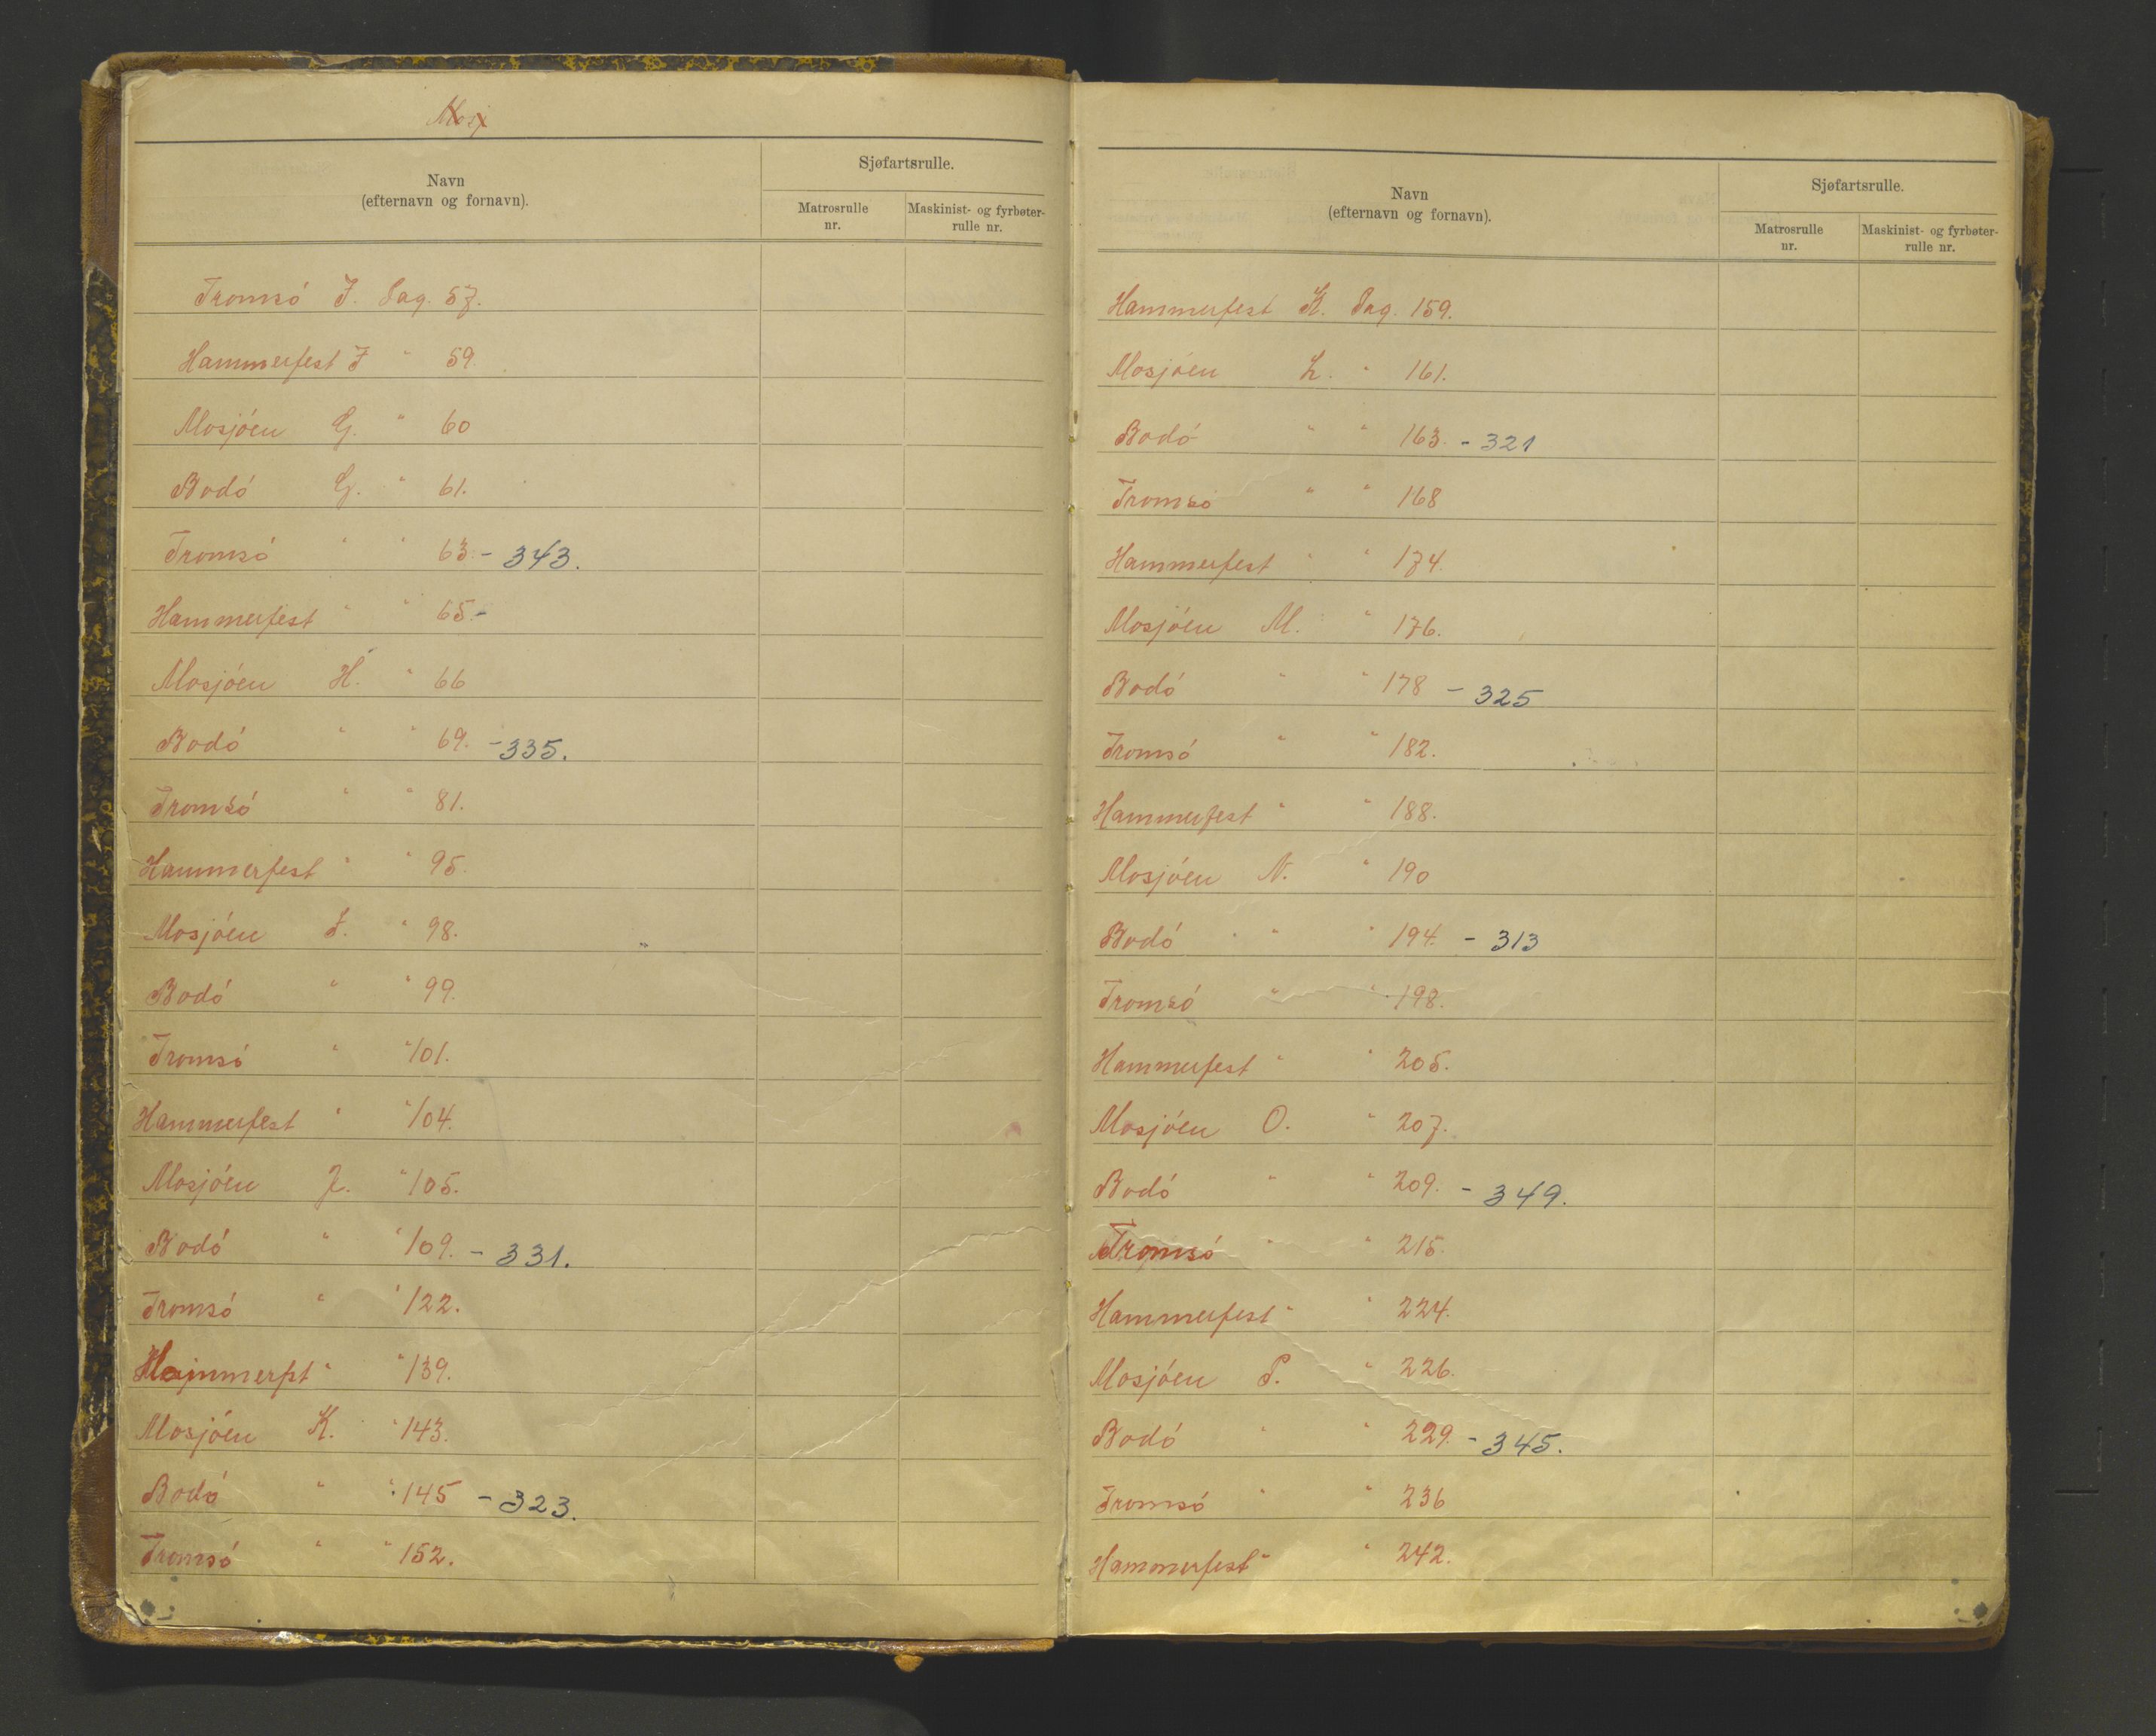 Mosj
Navn
(efternavn og fornavn).
Sjøfartsrulle.
Matrosrulle
nr.
Maskinist- og fyrbøter-
rulle nr.
Tromsó F. Pag. 57.
Hammerfest F " 59.
Mosjóen G. " 60
Bodó G. " 61.
Tromsó " " 63. - 343.
Hammerfest " " 65. -
Mosjóen H. " 66
Bodó " " 69. - 335.
Tromsó " " 81.
Hammerfest " " 95.
Mosjóen I. " 98.
Bodó " " 99.
Tromsó " " 101.
Hammerfest " " 104.
Mosjóen J. " 105.
Bodó " " 109. - 331.
Tromsó " " 122.
Hammerfst " " 139.
Mosjóen K. " 143.
Bodó " " 145 - 323.
Tromsó " " 152.
Navn
(efternavn og fornavn).
Sjøfartsrulle.
Matrosrulle
nr.
Maskinist- og fyrbøter-
rulle nr.
Hammerfest K. Pag. 159.
Mosjóen L. " 161.
Bodó " " 163. - 321
Tromsó " " 168
Hammerfest " " 174.
Mosjóen M. " 176.
Bodó " " 178 - 325
Tromsó " " 182.
Hammerfest " " 188.
Mosjóen N. " 190
Bodó " " 194. - 313
Tromsó " " 198.
Hammerfest " " 205.
Mosjóen O. " 207.
Bodó " " 209. - 349.
Tromsó " " 215.
Hammerfest " " 224.
Mosjóen P. " 226.
Bodó " " 229. - 345.
Tromsó " " 236
Hammerfest " " 242.